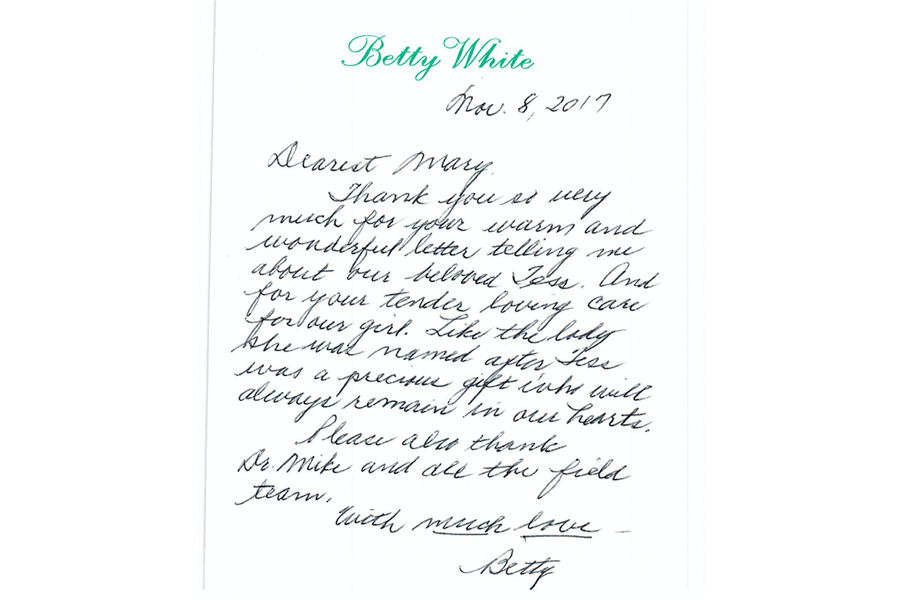 Betty White
Nov. 8, 2017
Dearest Mary,
Thank you so very
much for your warm and
wonderful letter telling me
about our beloved Tess. And
for your tender loving care
for our girl. Like the lady
she was named after Tess
was a precious gift who will
always remain in our hearts.
Please also thank
Dr. Mike and all the field
team.
With much love –
Betty